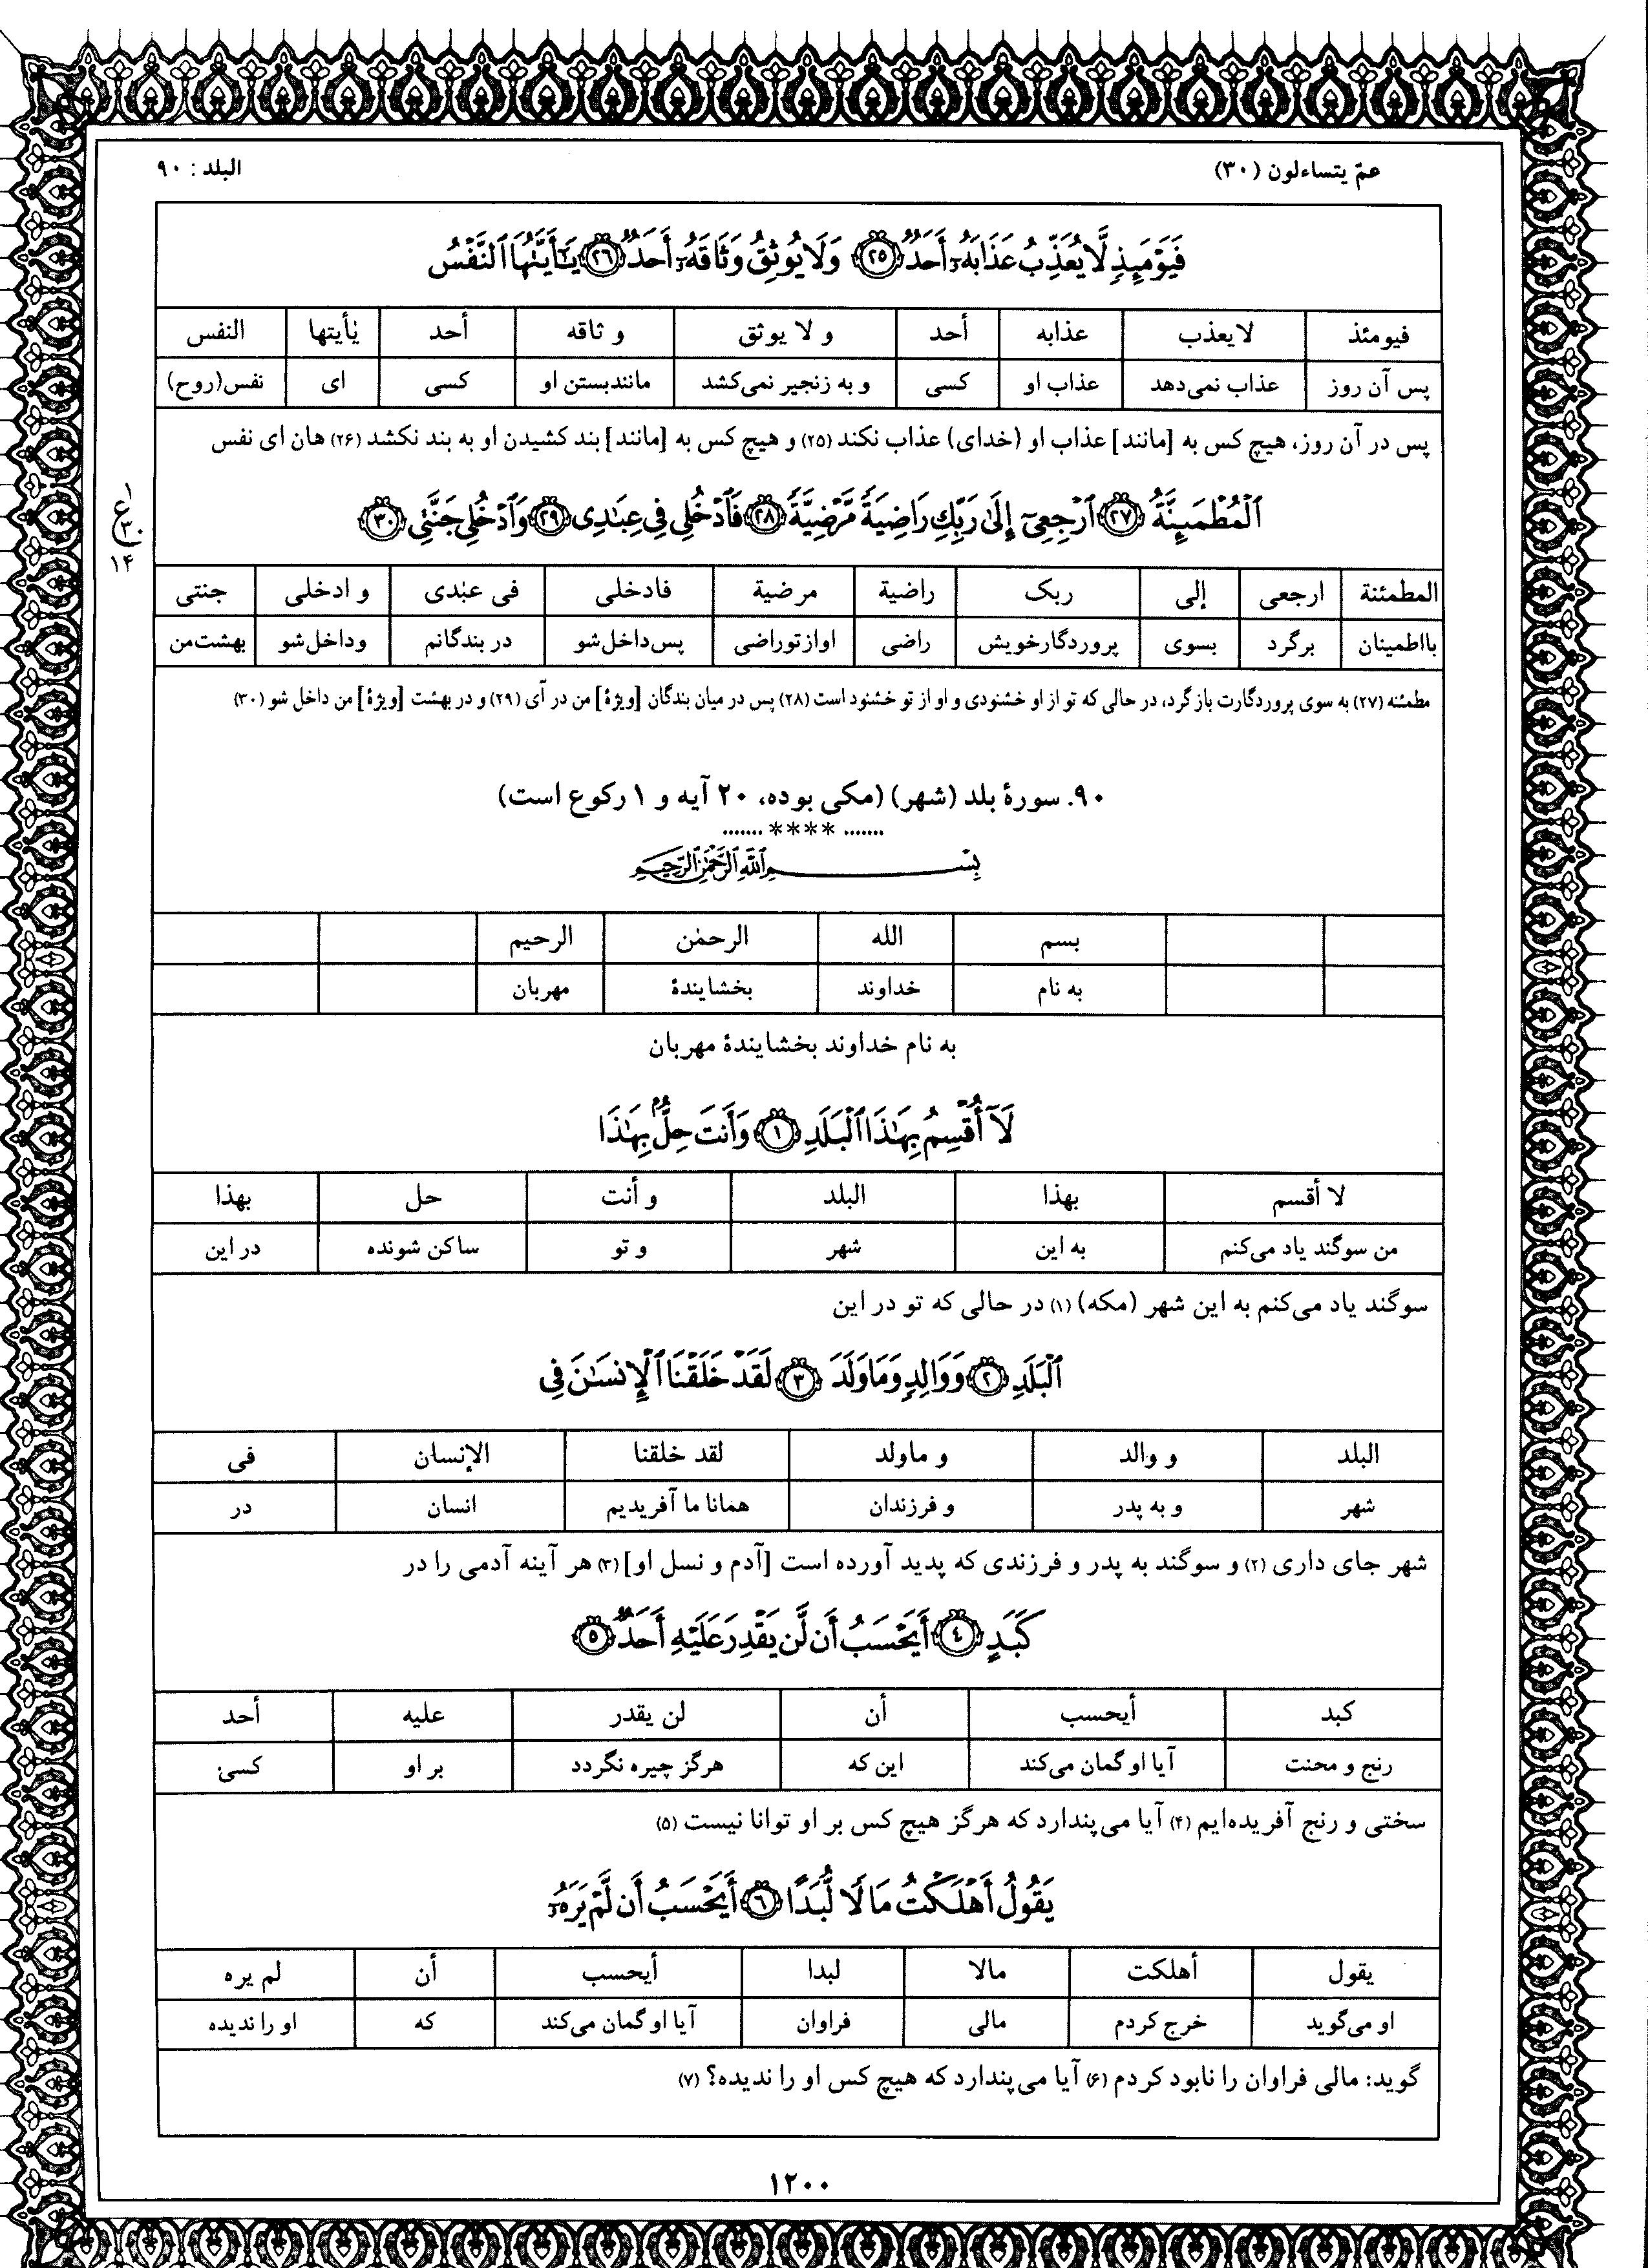 عمّ يتساءلون (۳۰)
البلد : ۹۰
فَيَوْمَئِذٍ لَّا يُعَذِّبُ عَذَابَهُۥٓ أَحَدٌ ۝٢٥ وَلَا يُوثِقُ وَثَاقَهُۥٓ أَحَدٌ ۝٢٦ يَـٰٓأَيَّتُهَا ٱلنَّفْسُ
فيومئذ لايعذب عذابه أحد و لا يوثق و ثاقه أحد يٰأيتها النفس
پس آن روز عذاب نمی‌دهد عذاب او کسی و به زنجیر نمی‌کشد مانندبستن او کسی ای نفس(روح)
پس در آن روز، هیچ کس به [مانند] عذاب او (خدای) عذاب نکند (۲۵) و هیچ کس به [مانند] بند کشیدن او به بند نکشد (۲۶) هان ای نفس
ٱلْمُطْمَئِنَّةُ ۝٢٧ ٱرْجِعِىٓ إِلَىٰ رَبِّكِ رَاضِيَةً مَّرْضِيَّةً ۝٢٨ فَٱدْخُلِى فِى عِبَـٰدِى ۝٢٩ وَٱدْخُلِى جَنَّتِى ۝٣٠
۱
ع
۳۰
۱۴
المطمئنة ارجعی إلی ربک راضیة مرضیة فادخلی فی عبٰدی و ادخلی جنتی
بااطمینان برگرد بسوی پروردگارخویش راضی اوازتوراضی پس‌داخل‌شو در بندگانم وداخل‌شو بهشت‌من
مطمئنه (۲۷) به سوی پروردگارت بازگرد، در حالی که تو از او خشنودی و او از تو خشنود است (۲۸) پس در میان بندگان [ویژهٔ] من در آی (۲۹) و در بهشت [ویژهٔ] من داخل شو (۳۰)
۹۰. سورهٔ بلد (شهر) (مکی بوده، ۲۰ آیه و ۱ رکوع است)
....... **** .......
بِسْمِ ٱللَّهِ ٱلرَّحْمَـٰنِ ٱلرَّحِيمِ
بسم الله الرحمٰن الرحیم
به نام خداوند بخشایندهٔ مهربان
به نام خداوند بخشایندهٔ مهربان
لَآ أُقْسِمُ بِهَـٰذَا ٱلْبَلَدِ ۝١ وَأَنتَ حِلٌّۢ بِهَـٰذَا
لا أقسم بهذا البلد و أنت حل بهذا
من سوگند یاد می‌کنم به این شهر و تو ساکن شونده در این
سوگند یاد می‌کنم به این شهر (مکه) (۱) در حالی که تو در این
ٱلْبَلَدِ ۝٢ وَوَالِدٍ وَمَا وَلَدَ ۝٣ لَقَدْ خَلَقْنَا ٱلْإِنسَـٰنَ فِى
البلد و والد و ماولد لقد خلقنا الإنسان فی
شهر و به پدر و فرزندان همانا ما آفریدیم انسان در
شهر جای داری (۲) و سوگند به پدر و فرزندی که پدید آورده است [آدم و نسل او] (۳) هر آینه آدمی را در
كَبَدٍ ۝٤ أَيَحْسَبُ أَن لَّن يَقْدِرَ عَلَيْهِ أَحَدٌ ۝٥
کبد أیحسب أن لن یقدر علیه أحد
رنج و محنت آیا او گمان می‌کند این که هرگز چیره نگردد بر او کسی
سختی و رنج آفریده‌ایم (۴) آیا می‌پندارد که هرگز هیچ کس بر او توانا نیست (۵)
يَقُولُ أَهْلَكْتُ مَالًا لُّبَدًا ۝٦ أَيَحْسَبُ أَن لَّمْ يَرَهُۥٓ
یقول أهلکت مالا لبدا أیحسب أن لم یره
او می‌گوید خرج کردم مالی فراوان آیا او گمان می‌کند که او را ندیده
گوید: مالی فراوان را نابود کردم (۶) آیا می‌پندارد که هیچ کس او را ندیده؟ (۷)
۱۲۰۰